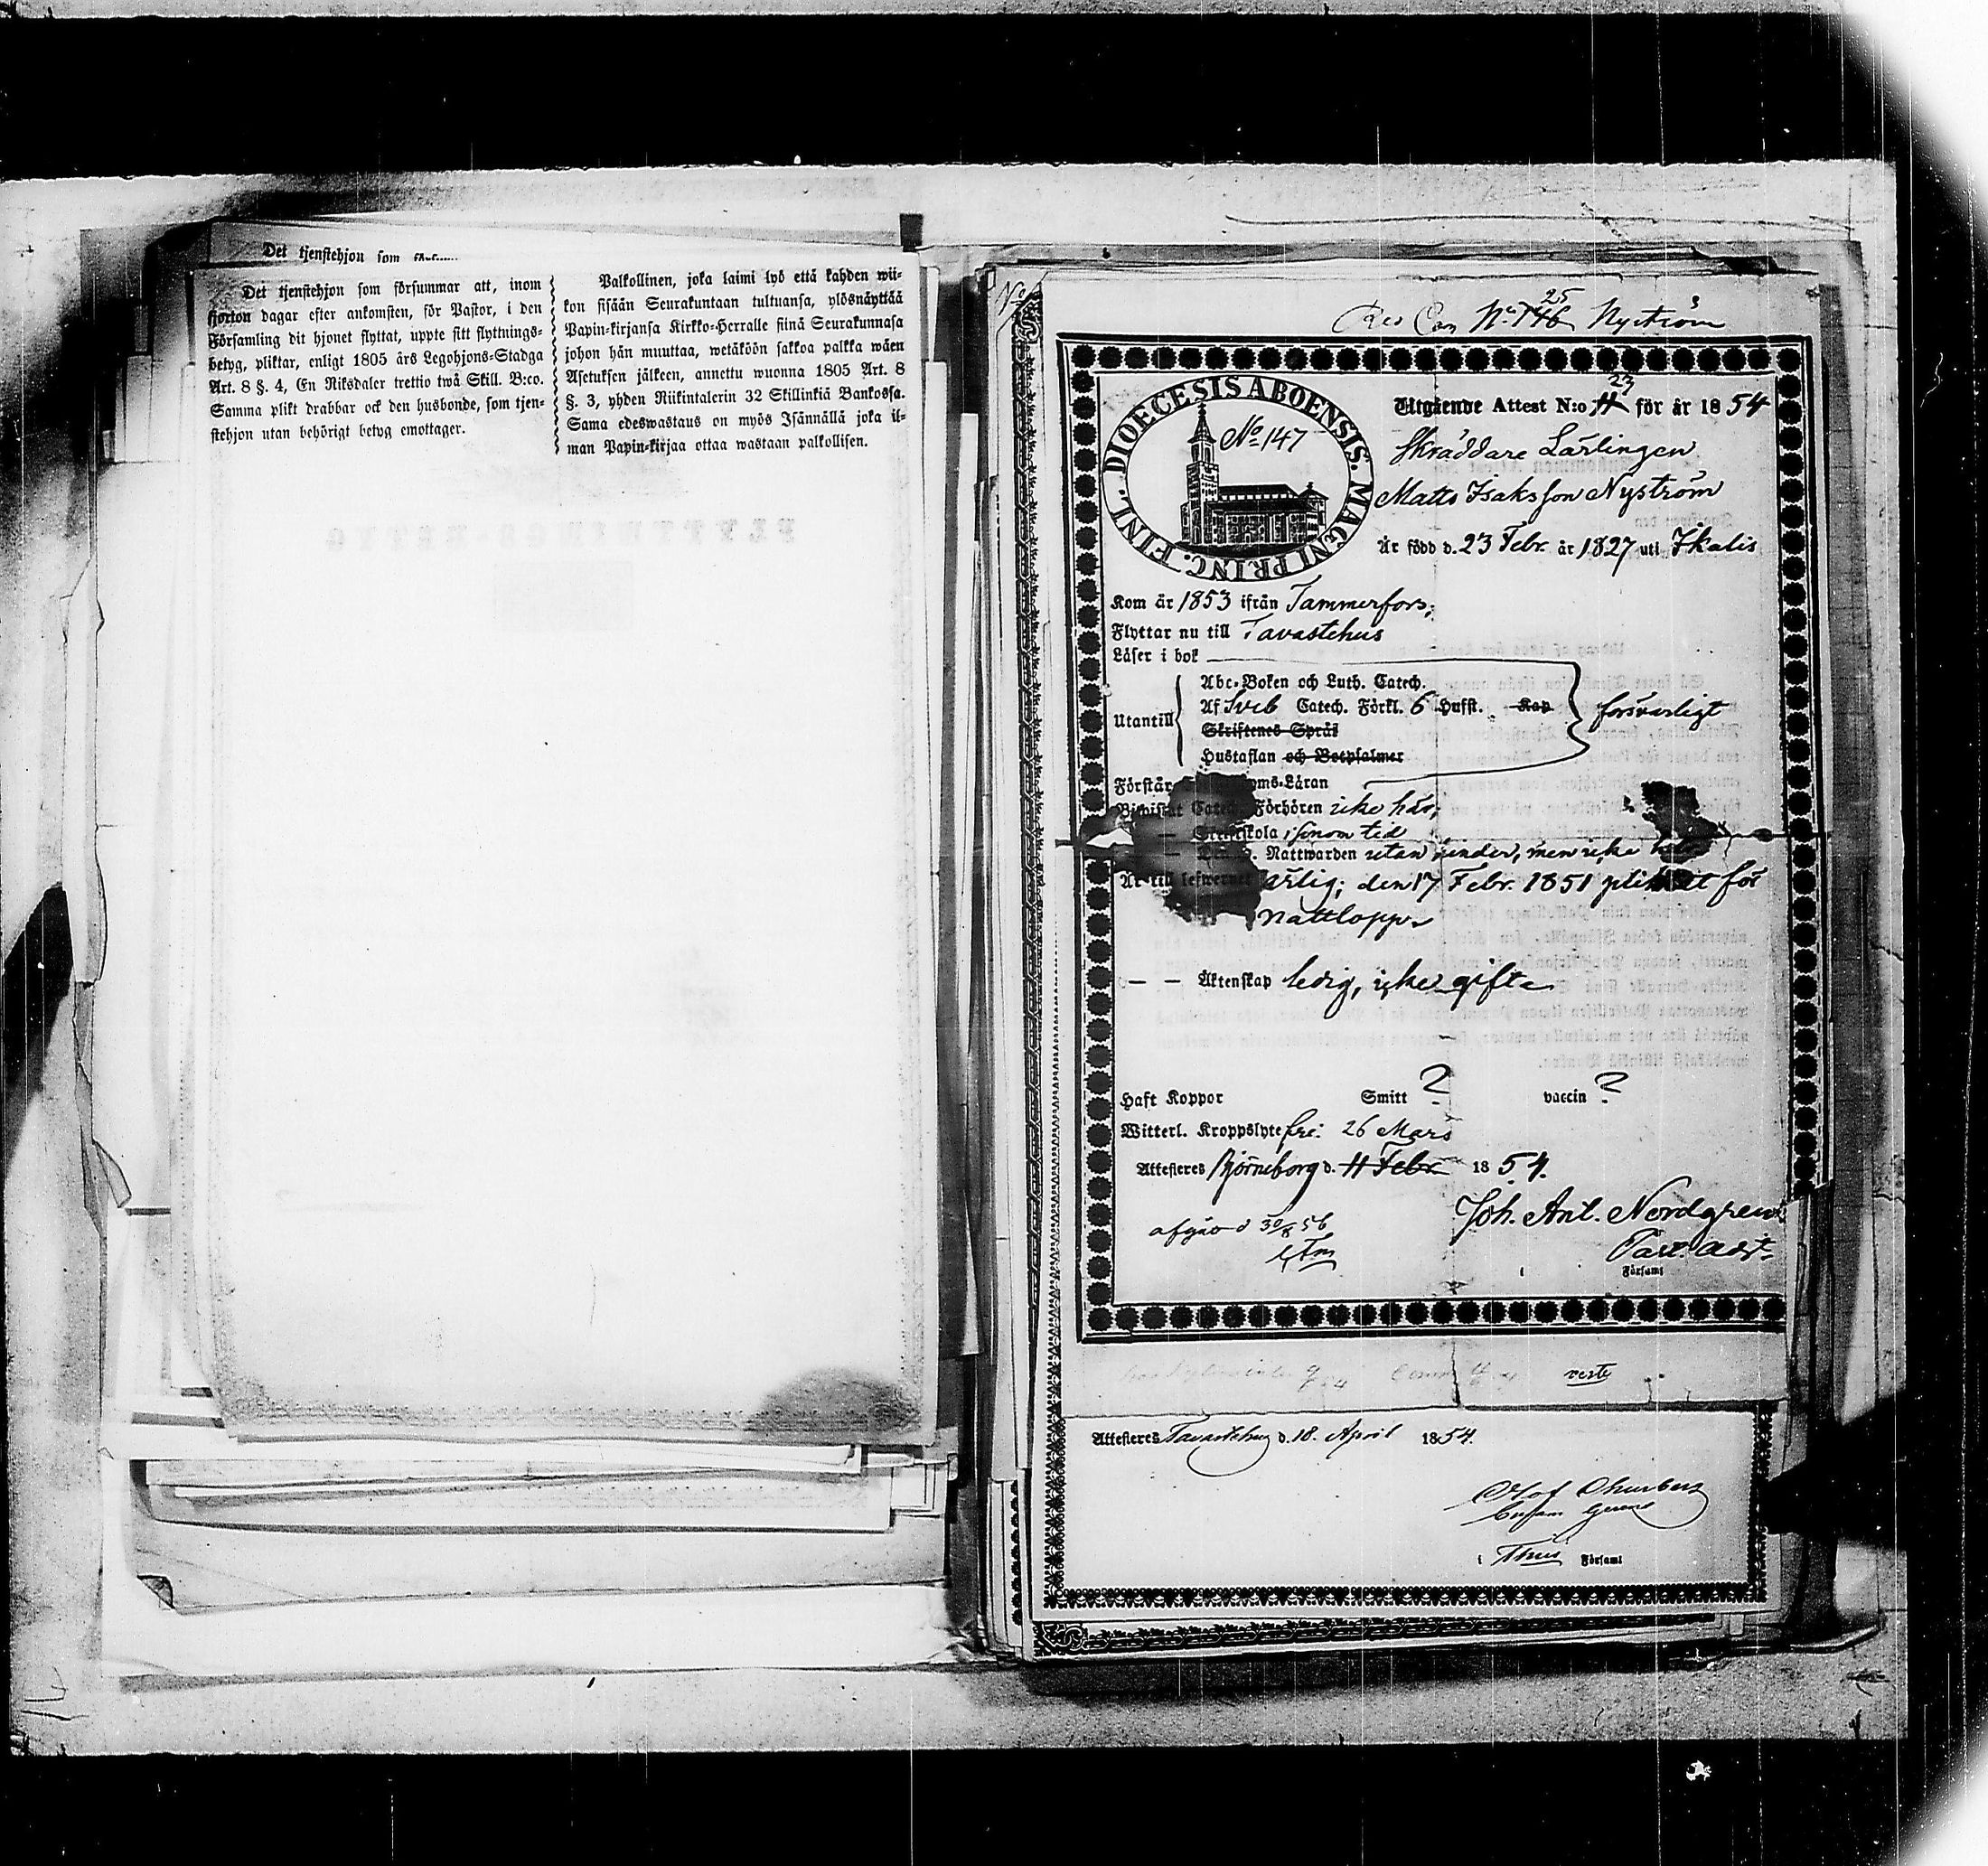 Det tjenstehjon som
Det tjenstehjon som försummar att, inom
fjorton dagar efter ankomsten, för Pastor, i den
Församling dit hjonet flyttat, uppte sitt flyttnings-
betyg, pliktar, enligt 1805 års Legohjons-Stadga
Art. 8 §. 4, En Riksdaler trettio twå Skill. B:co.
Samma plikt drabbar ock den husbonde, som tjen-
stehjon utan behörigt betyg emottager.
Palkollinen, joka laimi lyö että kahden wii-
kon sisään Seurakuntaan tultuansa, ylösnäyttää
Papin-kirjansa Kirkko-Herralle siinä Seurakunnasa
johon hän muuttaa, wetäköön sakkoa palkka wäen
Asetuksen jälkeen, annettu wuonna 1805 Art. 8
§. 3, yhden Riikintalerin 32 Skillinkiä Bankossa.
Sama edeswastaus on myös Isännällä joka il-
man Papin-kirjaa ottaa wastaan palkollisen.
No
25
No 146 Nyström
DIOECESIS ABOENSIS. MAGNI PRINC. FINL.
No 147
23
Utgående Attest N:o 11 för år 1854
Skräddare Lärlingen
Matts Isaksson Nyström
Är född d. 23 Febr. år 1827 uti Ikalis
Kom år 1853 ifrån Tammerfors;
Flyttar nu till Tavastehus
Läser i bok
Abc-Boken och Luth. Catech.
Utantill Af Sveb Catech. Förkl. 6 Hufst. Kap försvarligt
Skriftenes Språk
Hustaflan och Botpsalmer
Förstår Läran
Biwistat Catech. Förhören icke här;
— Skriftskola i sinom tid
— Nattwarden utan hinder, men icke
Är till lefwernet ärlig; den 17 Febr. 1851 pliktat för
nattlopps
— — Äktenskap ledig, icke gift
Haft Koppor Smitt ? vaccin ?
Witterl. Kroppslyte fri. 26 Mars
Attesteras Björneborg d. 11 Febr 1854.
Joh. Ant. Nordgren
Past. adj.
Församl
Attesteras Tavastehus d. 18. April 1854.
i Thus Församl